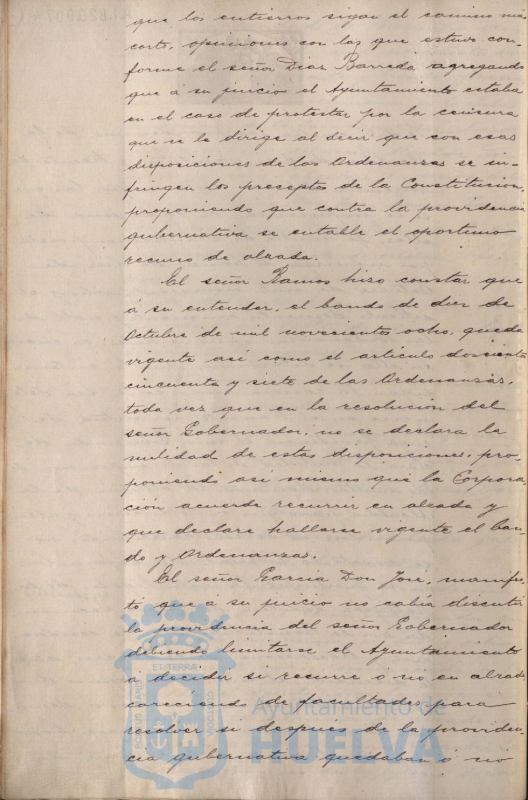 que los entierros sigan el camino mas
corto, opiniones con las que estuvo con-
forme el señor Diaz Barreda agregando
que á su juicio el Ayuntamiento estaba
en el caso de protestar por la censura
que se le dirige al decir que con esas
disposiciones de las Ordenanzas se in-
fringen los preceptos de la Constitucion,
proponiendo que contra la providencia
gubernativa se entable el oportuno
recurso de alzada.
El señor Ramos hizo constar que
á su entender, el bando de diez de
Octubre de mil novecientos ocho, queda
vigente así como el artículo doscientos
cincuenta y siete de las Ordenanzas,
toda vez que en la resolución del
señor Gobernador, no se declara la
nulidad de estas disposiciones, pro-
poniendo así mismo que la Corpora-
ción acuerde recurrir en alzada y
que declare hallarse vigente el ban-
do y Ordenanzas.
El señor García Don José, manifes-
tó que á su juicio no cabía discutir
la providencia del señor Gobernador
debiendo limitarse el Ayuntamiento
á decidir si recurre ó no en alzada
careciendo de facultades para
resolver si después de la providen-
cia gubernativa quedaban ó no
Ayuntamiento de
HUELVA